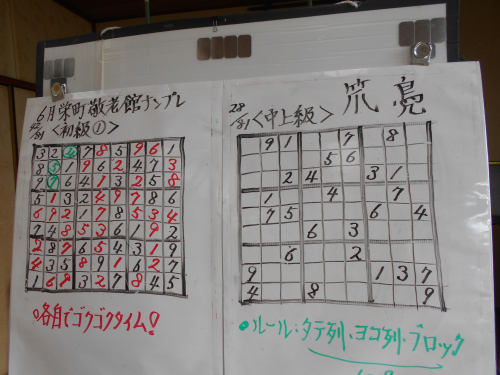 6月栄町敬老館ナンプレ
42/81 <初級①>
3 2 7 8 5 9 6 1
8 5 7 9 6 2 4 7 3
9 7 6 4 1 3 2 5 8
5 1 3 2 4 9 7 8 6
6 9 2 1 7 8 5 3 4
7 4 8 5 3 6 1 9 2
2 8 7 6 5 4 3 1 9
4 3 5 8 9 1 6 2 7
1 6 8 3 2 7 8 4 5
各自でゴクゴクタイム!
28/81 <中上級>
9 1 7 8
5 6
2 4 3 1
1 4 7
7 5 6 4
6 3
6 2
9 1 3 7
4 8 9
ルール:タテ列、ヨコ列・ブロック